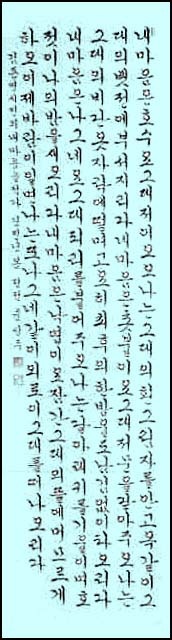 내마음은호수요그대저어오오나는그대의흰그림자를안고옥같이그
대의뱃전에부서지리라내마음은촛불이요그대저문을닫아주오나는
그대의비단옷자락에떨며고요히최후의한방울도남김없이타오리라
내마음은나그네요그대피리를불어주오나는달아래귀를기울이며호
젓이나의밤을새오리라내마음은낙엽이요잠깐그대의뜰에머므르게
하오이제바람이일면나는또나그네같이외로이그대를떠나오리라